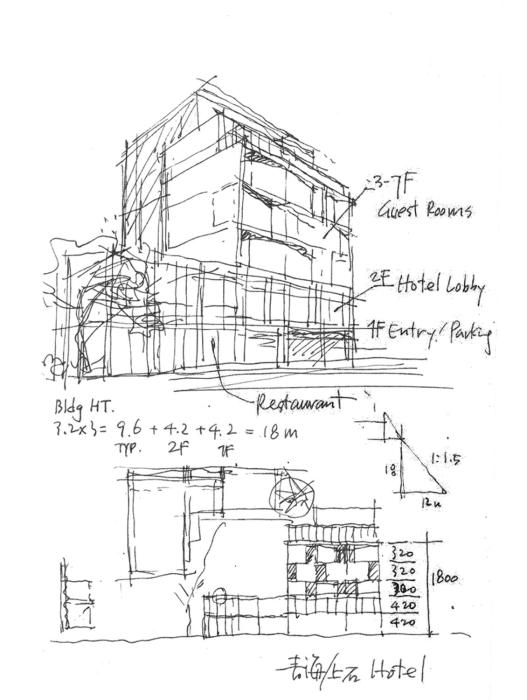 3-7F
Guest Rooms
2F Hotel Lobby
1F Entry/Parking
Restaurant
Bldg HT.
3.2x3= 9.6 + 4.2 + 4.2 = 18 m
TYP. 2F 1F
18
1:1.5
12m
320
320
420
420
1800
Hotel